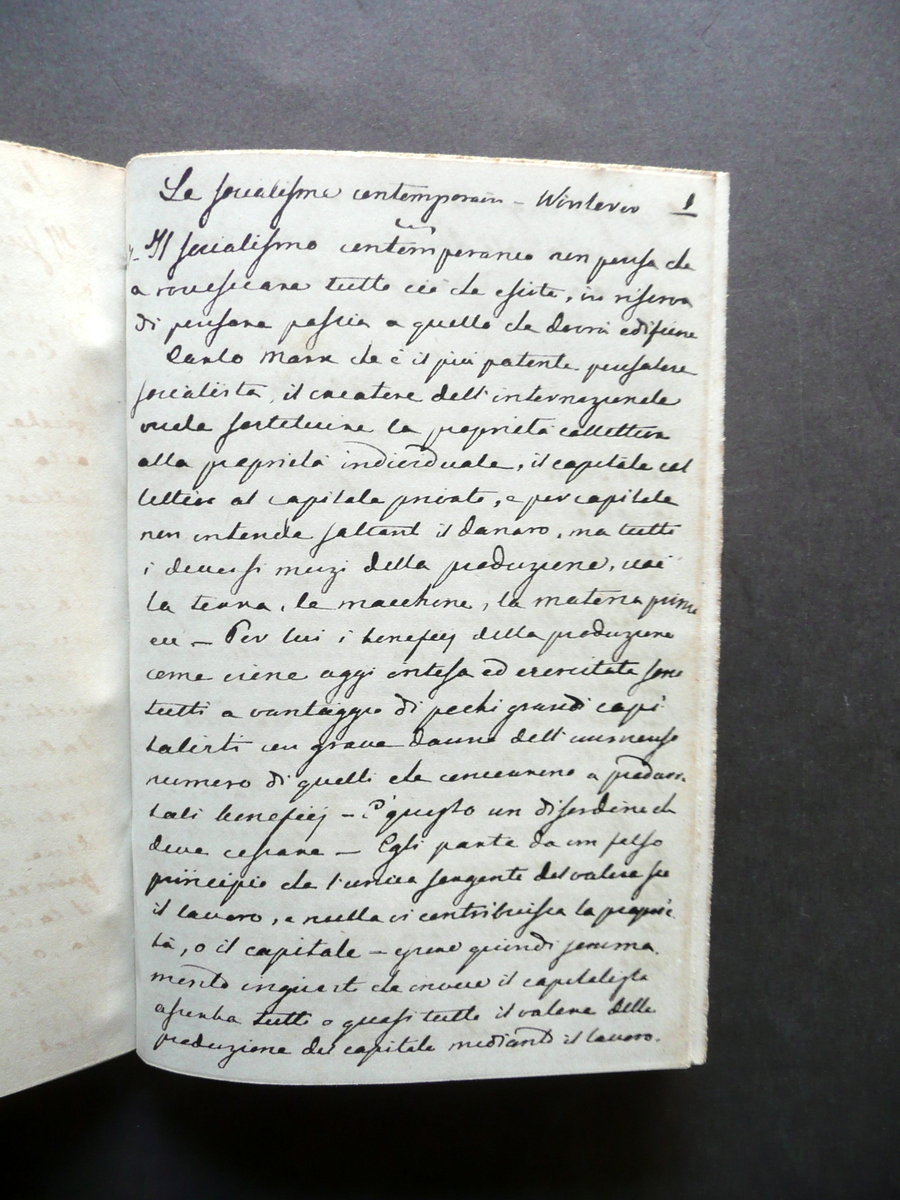 Le socialisme contemporain – Winterer 1
Il socialismo contemporaneo non pensa che
a rovesciare tutto ciò che esiste, in riserva
di pensare poscia a quello che dovrà edificare
Carlo Marx che è il più potente pensatore
socialista, il creatore dell'internazionale
vuole sostituire la proprietà collettiva
alla proprietà individuale, il capitale col
lettivo al capitale privato, e per capitale
non intende soltant il danaro, ma tutti
i diversi mezzi della produzione, cioè
la terra, le macchine, la materia prima
ecc – Per lui i beneficj della produzione
come viene oggi intesa ed esercitata sono
tutti a vantaggio di pochi grandi capi
talisti con grave danno dell'immenso
numero di quelli che concorrono a produr
tali beneficj – È questo un disordine ch
deve cessare – Egli parte da un falso
principio che l'unica sorgente del valore sia
il lavoro, e nulla vi contribuisca la proprie
tà, o il capitale – quindi somma
mente ingiusto che invece il capitalista
assorba tutto o quasi tutto il valore della
produzione del capitale mediante il lavoro.